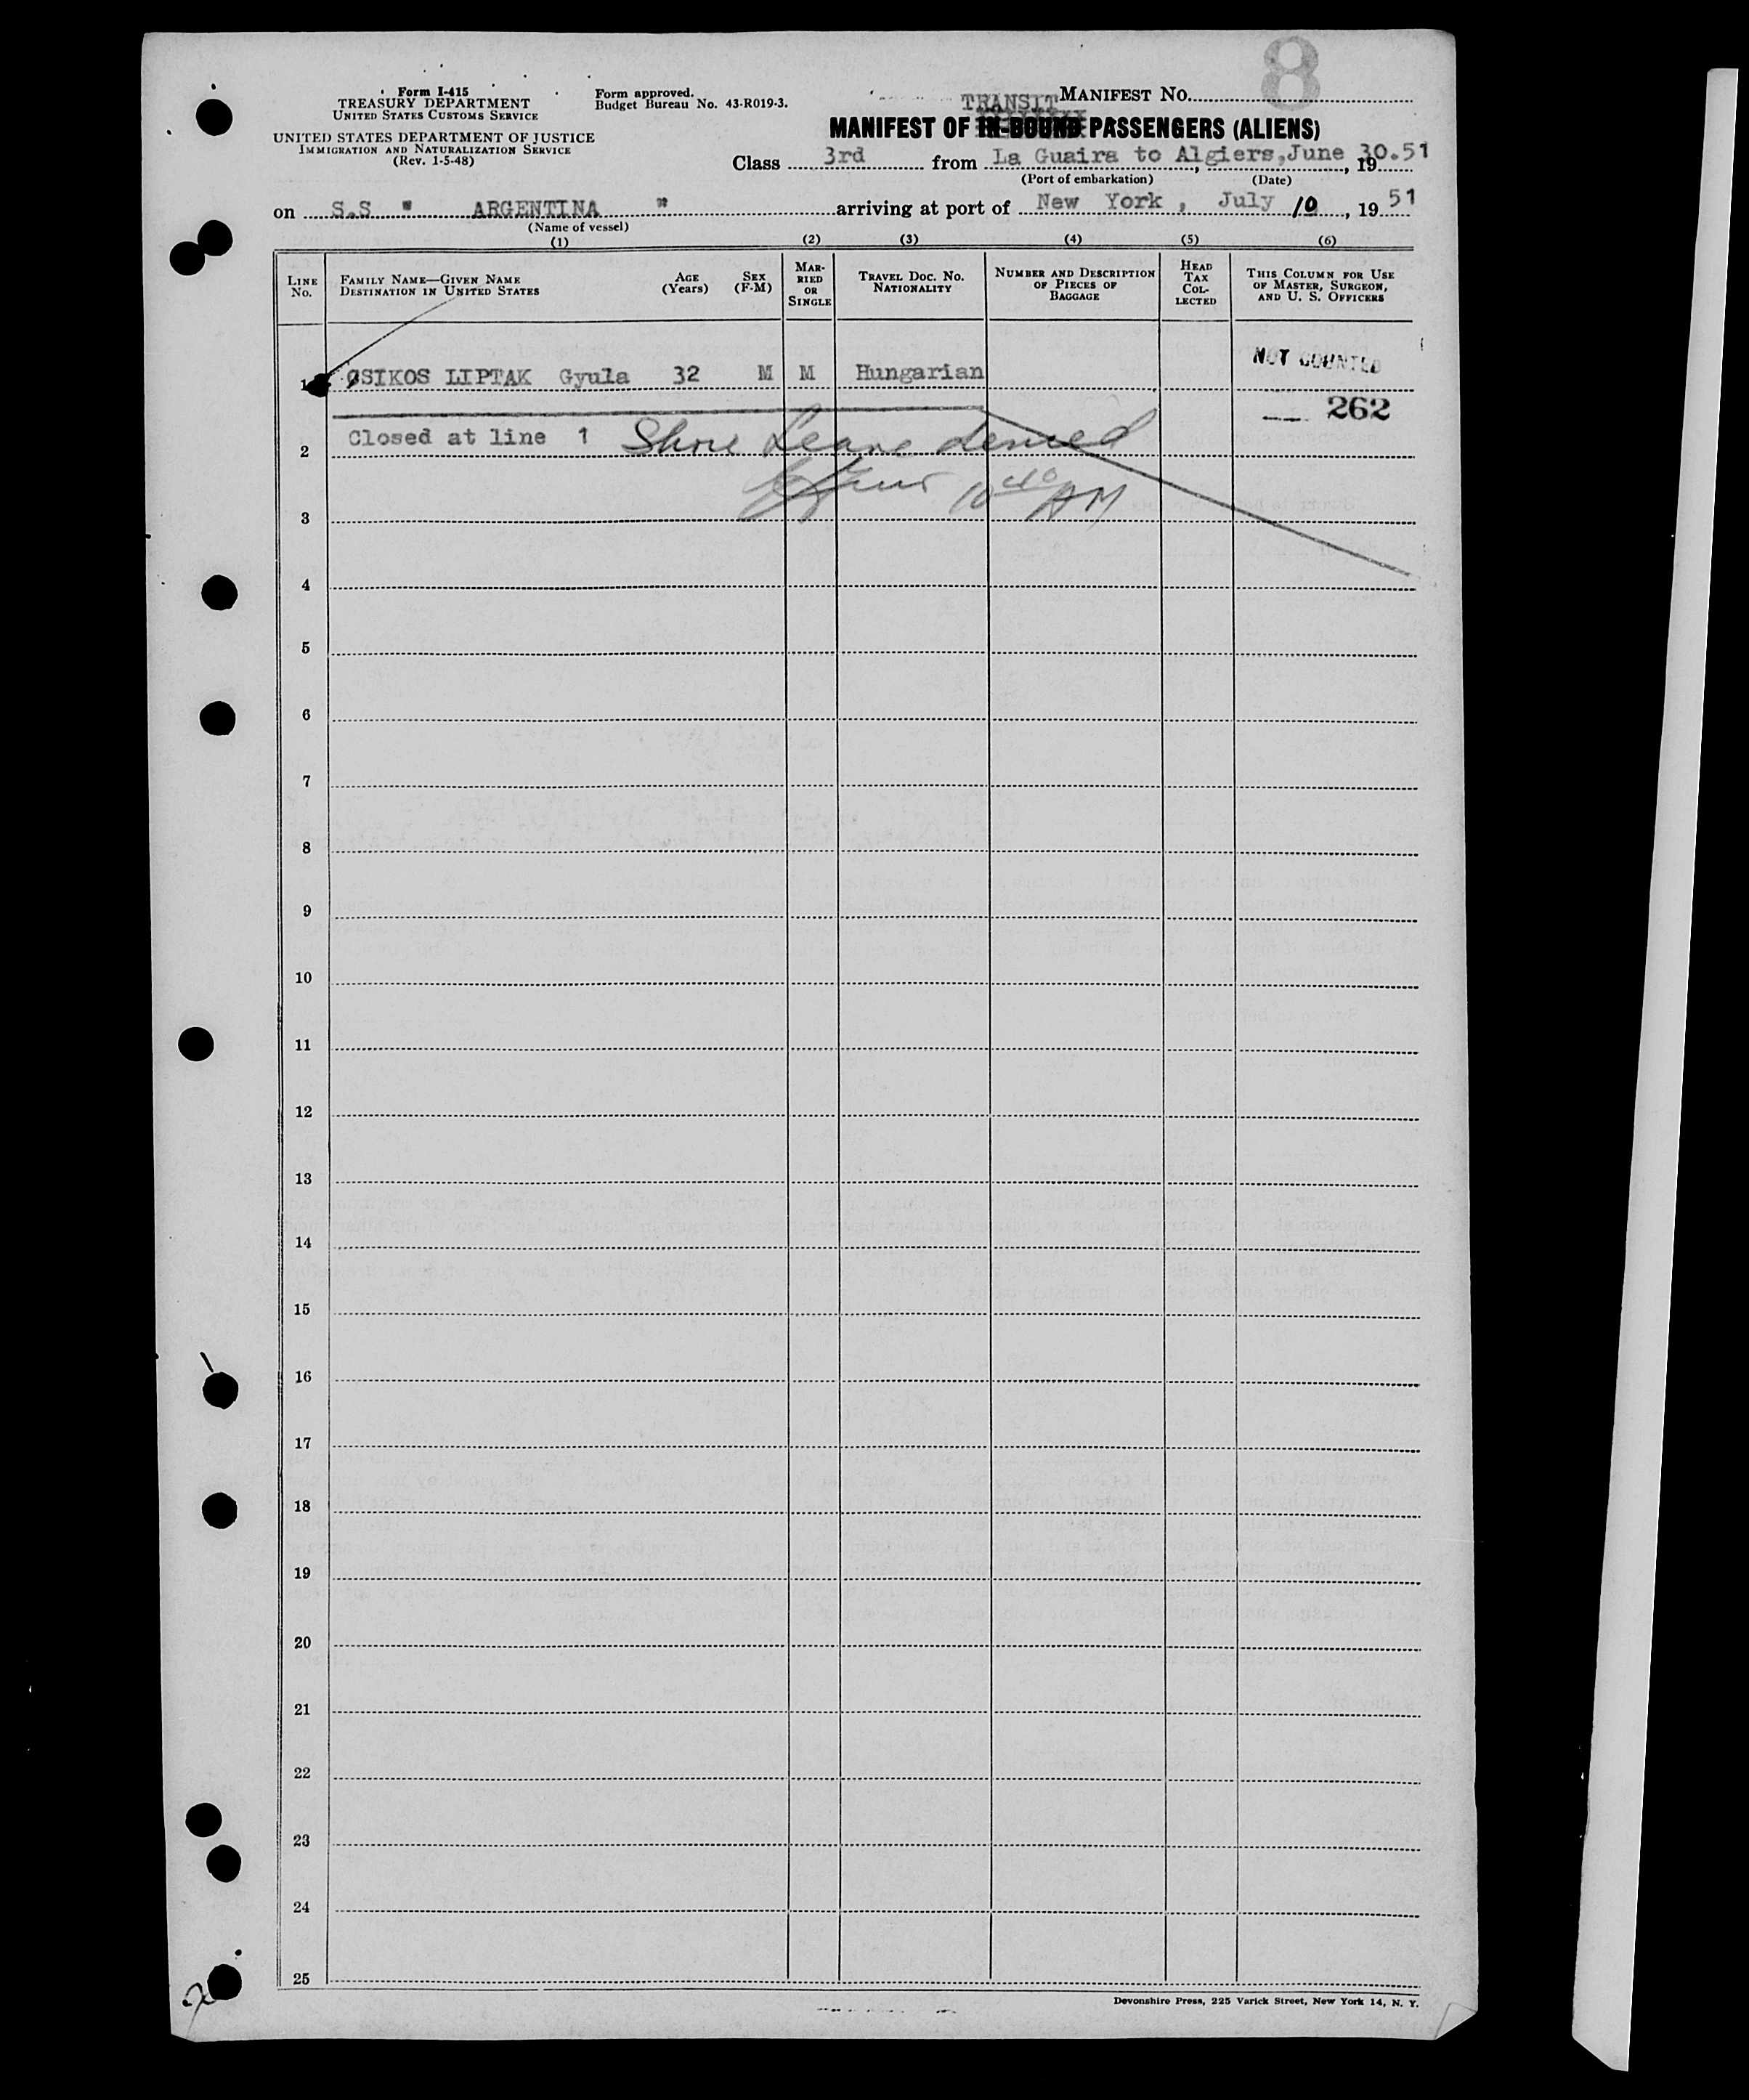 8
Form I-415
TREASURY DEPARTMENT
UNITED STATES CUSTOMS SERVICE
UNITED STATES DEPARTMENT OF JUSTICE
IMMIGRATION AND NATURALIZATION SERVICE
(Rev. 1-5-48)
Form approved.
Budget Bureau No. 43-R019-3.
MANIFEST NO.
TRANSIT
MANIFEST OF IN-BOUND PASSENGERS (ALIENS)
Class 3rd from La Guaira to Algiers, June 30.51, 19
(Port of embarkation) (Date)
on S.S " ARGENTINA " arriving at port of New York, July 10, 19 51
(Name of vessel)
(1) (2) (3) (4) (5) (6)
LINE No. FAMILY NAME—GIVEN NAME DESTINATION IN UNITED STATES AGE (Years) SEX (F-M) MARRIED OR SINGLE TRAVEL DOC. NO. NATIONALITY NUMBER AND DESCRIPTION OF PIECES OF BAGGAGE HEAD TAX COLLECTED THIS COLUMN FOR USE OF MASTER, SURGEON, AND U. S. OFFICERS
NOT COUNTED
1 CSIKOS LIPTAK Gyula 32 M M Hungarian
262
2 Closed at line 1 Shore Leave denied
10 40 AM
3
4
5
6
7
8
9
10
11
12
13
14
15
16
17
18
19
20
21
22
23
24
25
Devonshire Press, 225 Varick Street, New York 14, N. Y.